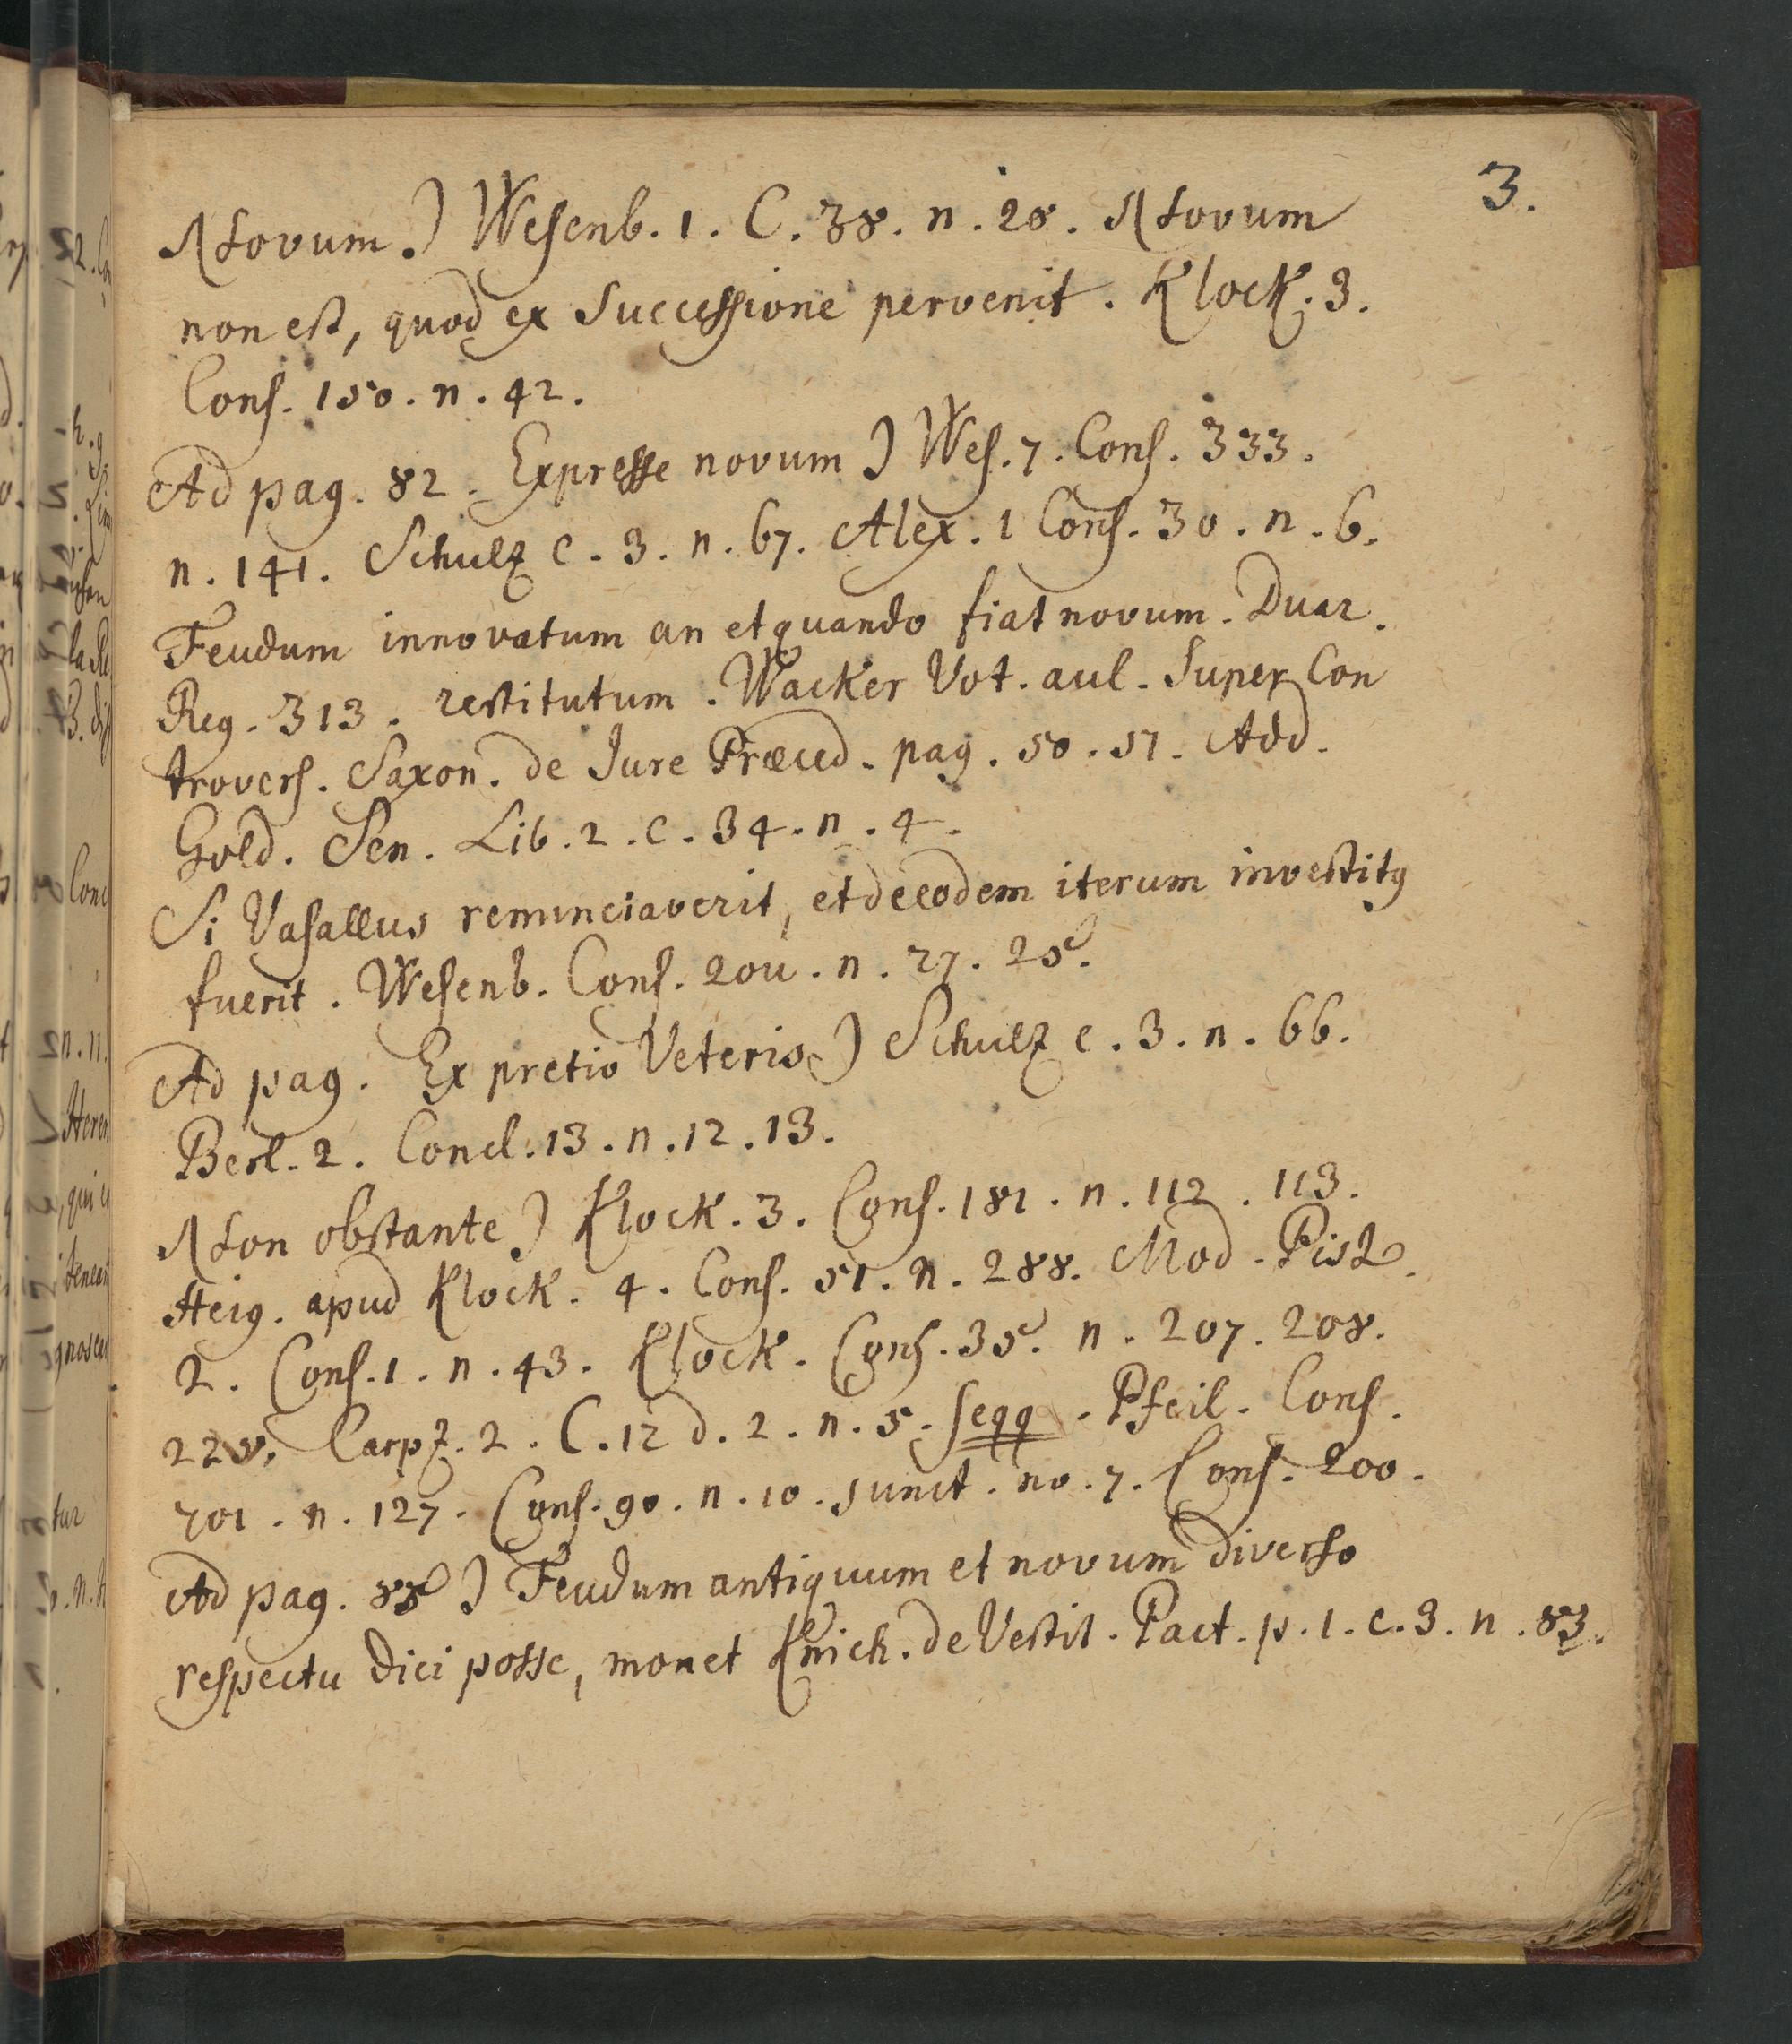 3.
Novum.) Wesenb. 1. C. 38. n. 28. Novum
non est, quod ex Successione pervenit. Klock. 3.
Cons. 150. n. 42.
Ad pag. 82. Expresse novum) Wes. 7. Cons. 333.
n. 141. Schulz c. 3. n. 67. Alex. 1 Cons. 30. n. 6.
Feudum innovatum an et quando fiat novum. Duar.
Reg. 313. restitutum. Wacker Vot. aul. Super Con
trovers. Saxon. de Jure Præced. pag. 50. 51. Add.
Gold. Sen. Lib. 2. c. 34. n. 4.
Si Vasallus renunciaverit, et de eodem iterum investitq
fuerit. Wesenb. Cons. 200. n. 27. 25.
Ad pag. Ex pretio Veteris) Schulz c. 3. n. 66.
Berl. 2. Concl. 13. n. 12. 13.
Non obstante) Klock. 3. Cons. 181. n. 112. 113.
Heig. apud Klock. 4. Cons. 51. n. 288. Mod. Pist.
2. Cons. 1. n. 43. Klock. Cons. 35. n. 207. 208.
225. Carpz. 2. C. 12 d. 2. n. 5. seqq. Pfeil. Cons.
701. n. 127. Cons. 90. n. 10. junct. no. 7. Cons. 200.
Ad pag. 85) Feudum antiquum et novum diverso
respectu dici posse, monet Knich. de Vestit. Pact. p. 1. c. 3. n. 83.